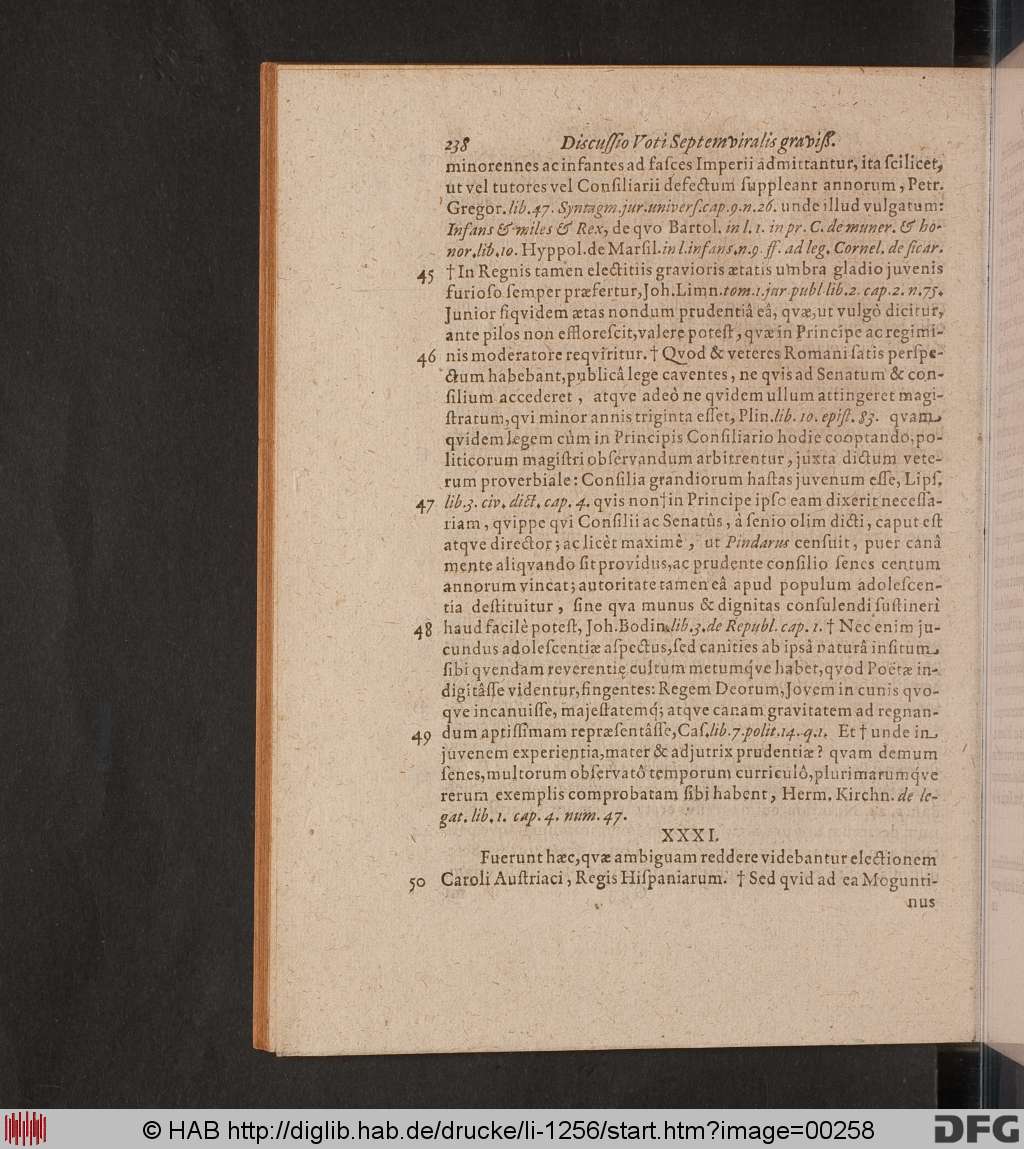 238 Discuſſio Voti Septemviralis graviſſ.
minorennes ac infantes ad faſces Imperii admittantur, ita ſcilicet,
ut vel tutores vel Conſiliarii defectum ſuppleant annorum, Petr.
Gregor. lib. 47. Syntagm. jur. univerſ. cap. 9. n. 26. unde illud vulgatum:
Infans & miles & Rex, de qvo Bartol. in l. 1. in pr. C. de muner. & ho-
nor. lib. 10. Hyppol. de Marſil. in l. infans. n. 9. ff. ad leg. Cornel. de ſicar.
45 † In Regnis tamen electitiis gravioris ætatis umbra gladio juvenis
furioſo ſemper præfertur, Joh. Limn. tom. 1. jur publ lib. 2. cap. 2. n. 75.
Junior ſiqvidem ætas nondum prudentiâ eâ, qvæ, ut vulgò dicitur,
ante pilos non effloreſcit, valere poteſt, qvæ in Principe ac regimi-
46 nis moderatore reqviritur. † Qvod & veteres Romani ſatis perſpe-
ctum habebant, publicâ lege caventes, ne qvis ad Senatum & con-
ſilium accederet, atqve adeò ne qvidem ullum attingeret magi-
ſtratum, qvi minor annis triginta eſſet, Plin. lib. 10. epiſt. 83. qvam
qvidem legem cùm in Principis Conſiliario hodie cooptando, po-
liticorum magiſtri obſervandum arbitrentur, juxta dictum vete-
rum proverbiale: Conſilia grandiorum haſtas juvenum eſſe, Lipſ.
47 lib. 3. civ. dict. cap. 4. qvis non † in Principe ipſo eam dixerit neceſſa-
riam, qvippe qvi Conſilii ac Senatûs, à ſenio olim dicti, caput eſt
atqve director; ac licèt maximè, ut Pindarus cenſuit, puer canâ
mente aliqvando ſit providus, ac prudente conſilio ſenes centum
annorum vincat; autoritate tamen eâ apud populum adoleſcen-
tia deſtituitur, ſine qva munus & dignitas conſulendi ſuſtineri
48 haud facilè poteſt, Joh. Bodin. lib. 3. de Republ. cap. 1. † Nec enim ju-
cundus adoleſcentiæ aſpectus, ſed canities ab ipsâ naturâ inſitum
ſibi qvendam reverentię cultum metumq́ve habet, qvod Poëtæ in-
digitâſſe videntur, fingentes: Regem Deorum, Jovem in cunis qvo-
qve incanuiſſe, majeſtatemq́; atqve canam gravitatem ad regnan-
49 dum aptiſſimam repræſentâſſe, Caſ. lib. 7. polit. 14. q. 1. Et † unde in
juvenem experientia, mater & adjutrix prudentiæ? qvam demum
ſenes, multorum obſervatô temporum curriculô, plurimarumq́ve
rerum exemplis comprobatam ſibi habent, Herm. Kirchn. de le-
gat. lib. 1. cap. 4. num. 47.
XXXI.
Fuerunt hæc, qvæ ambiguam reddere videbantur electionem
50 Caroli Auſtriaci, Regis Hiſpaniarum. † Sed qvid ad ea Mogunti-
nus
© HAB http://diglib.hab.de/drucke/li-1256/start.htm?image=00258
DFG